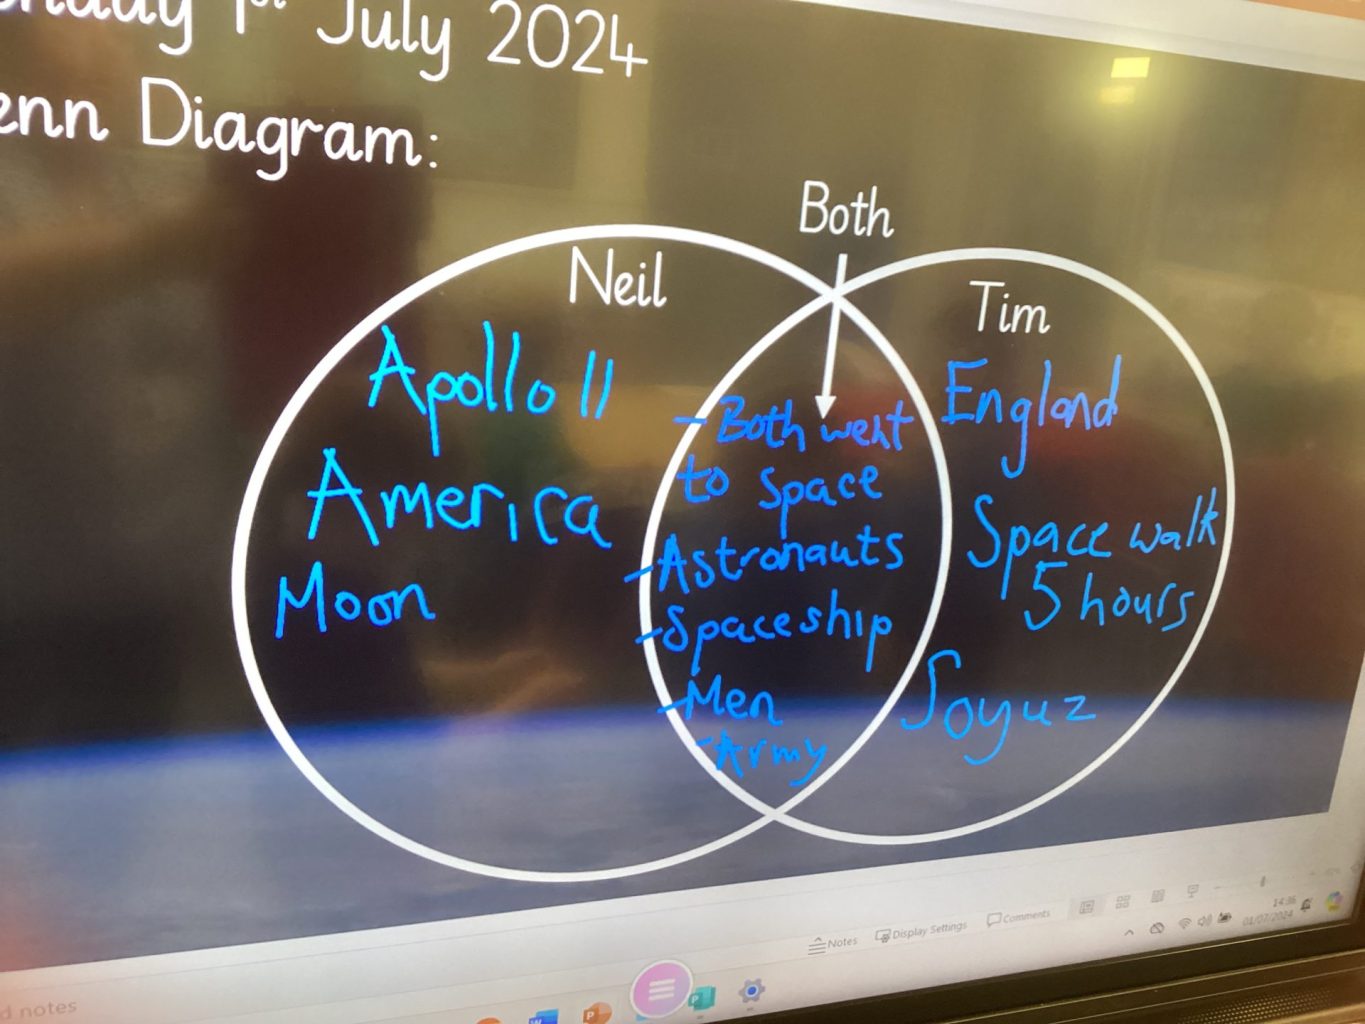 1st July 2024
Diagram:
Both
Neil
Tim
Apollo 11
America
Moon
- Both went
to space
- Astronauts
- Spaceship
- Men
- Army
England
Space walk
5 hours
Soyuz
Notes
Display Settings
Comments
14:36
01/07/2024
notes